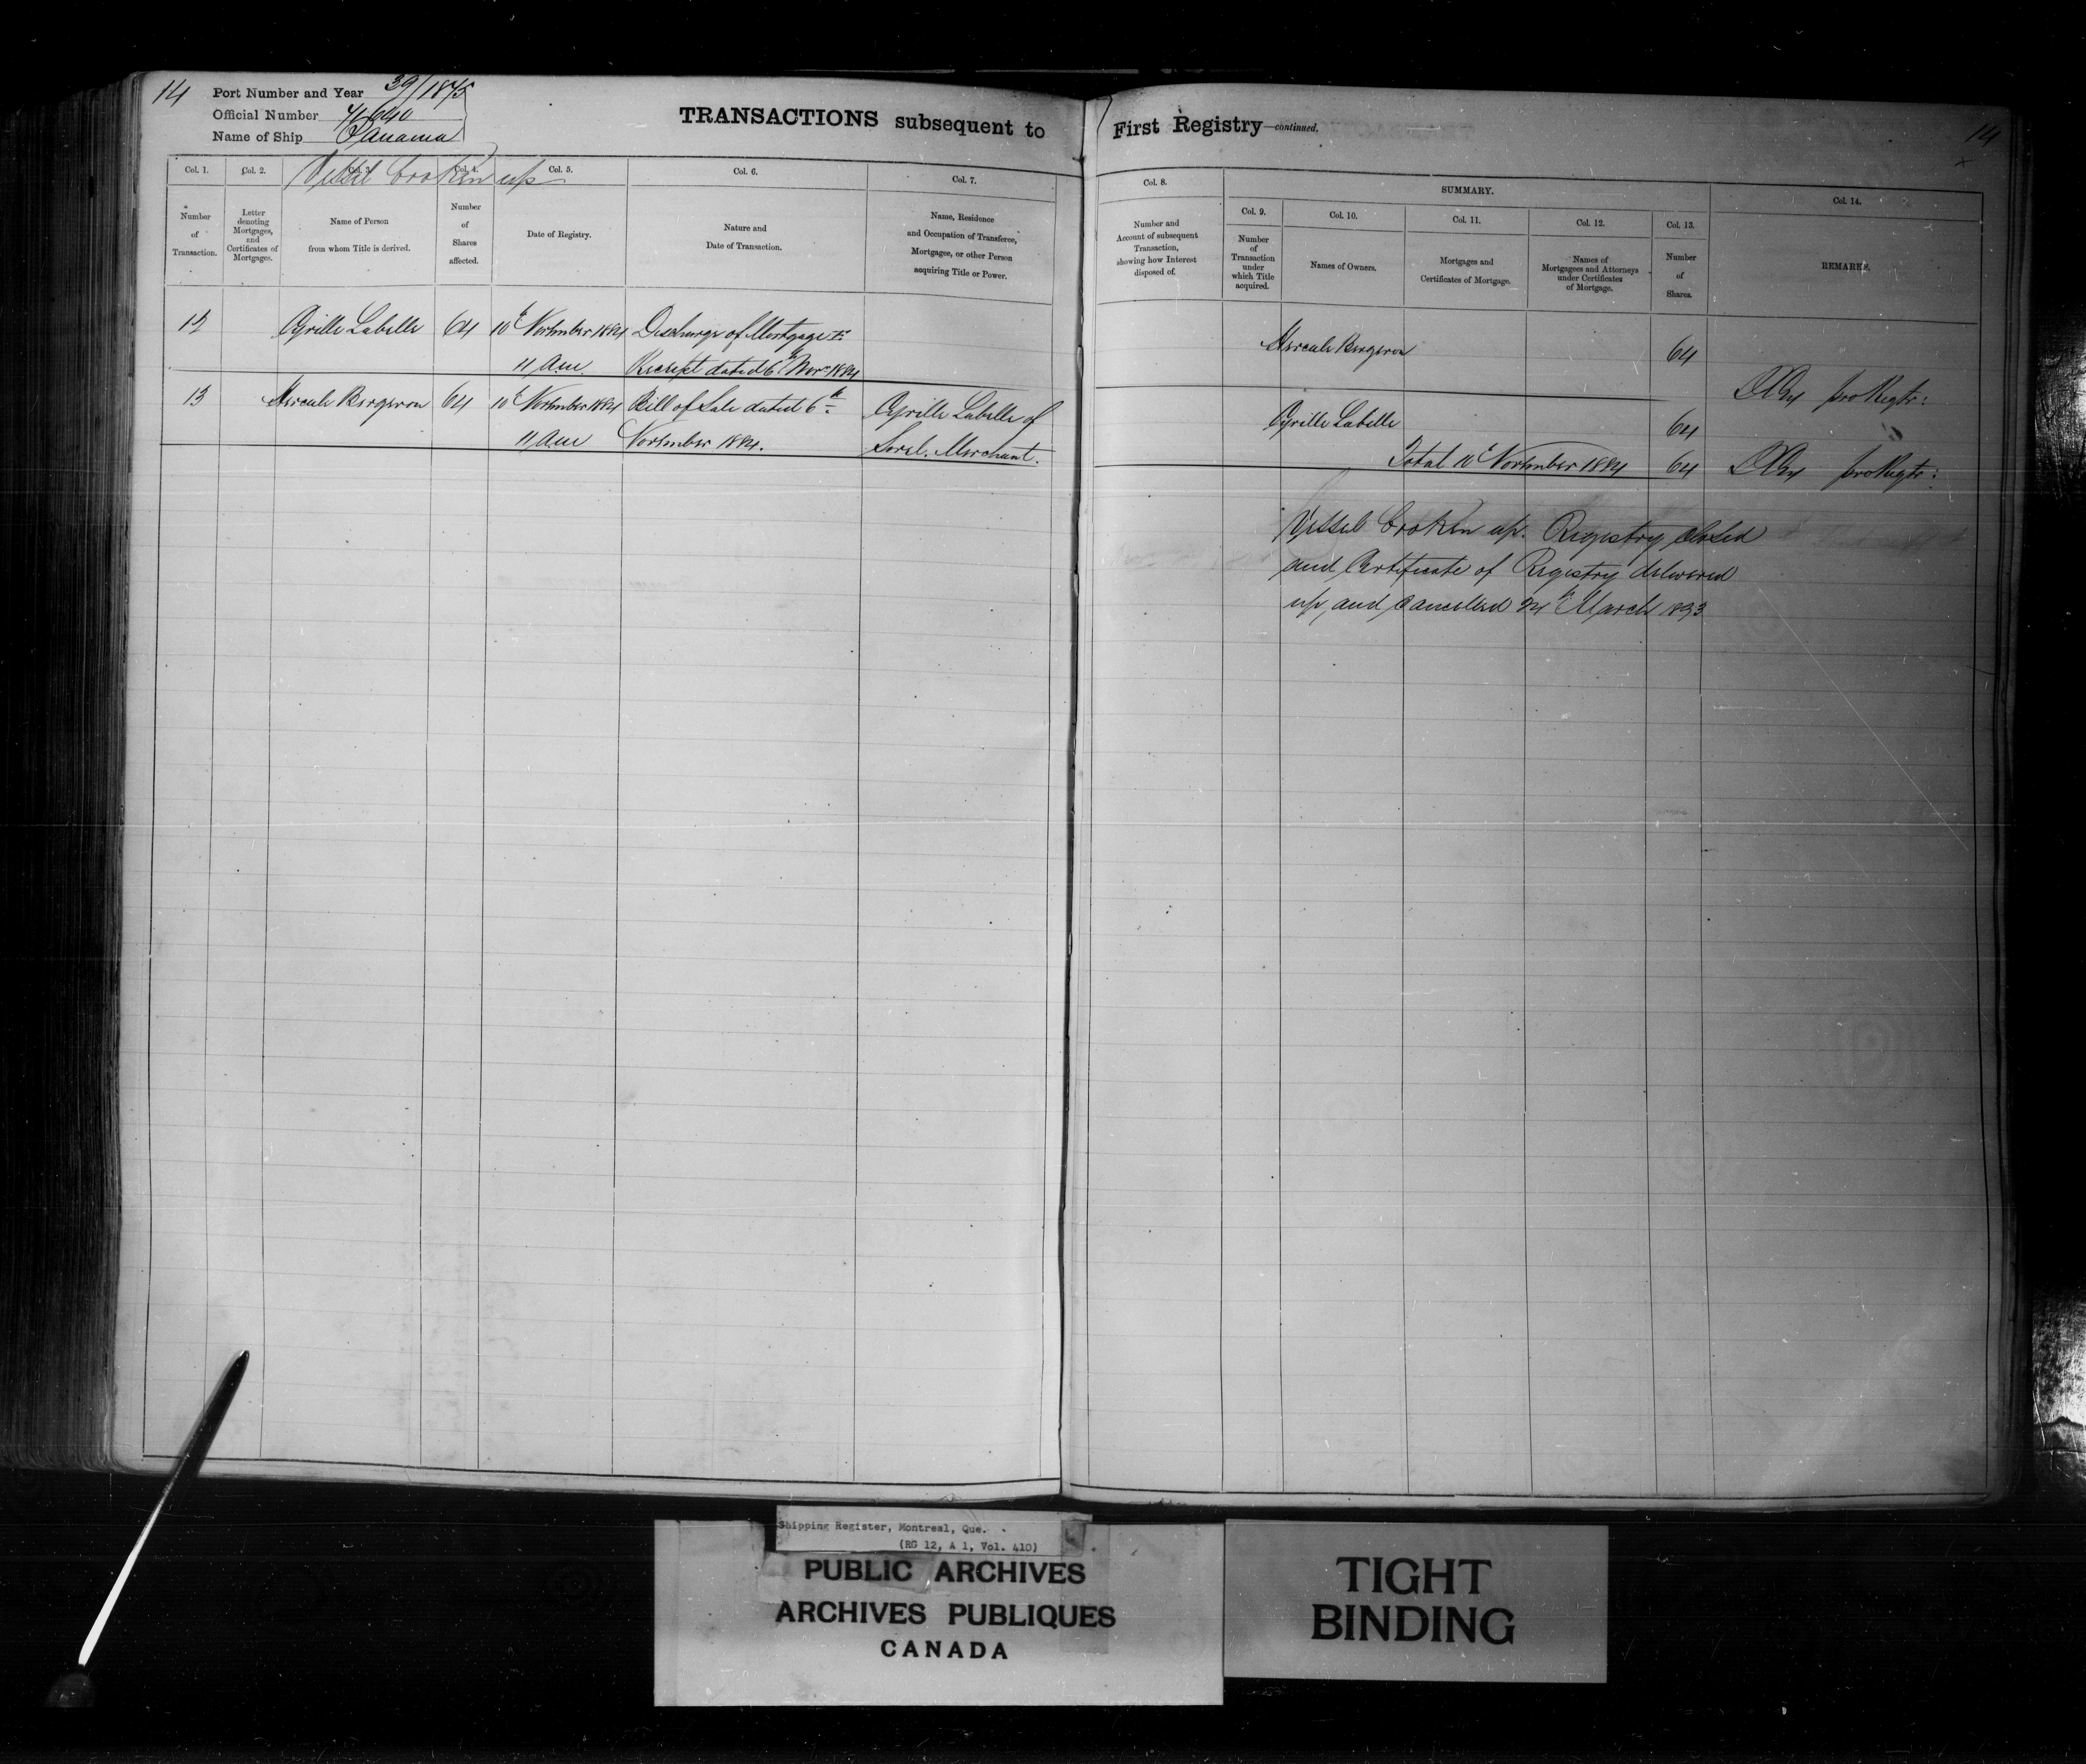 14
Port Number and Year 39/1875
Official Number
Name of Ship Panama
TRANSACTIONS subsequent to
First Registry—continued.
14
Vessel broken up
Col. 1.
Col. 2.
Col. 3.
Col. 4.
Col. 5.
Col. 6.
Col. 7.
Number
of
Transaction.
Letter
denoting
Mortgages,
and
Certificates of
Mortgages.
Name of Person
from whom Title is derived.
Number
of
Shares
affected.
Date of Registry.
Nature and
Date of Transaction.
Name, Residence
and Occupation of Transferee,
Mortgagee, or other Person
acquiring Title or Power.
Col. 8.
Number and
Account of subsequent
Transaction,
showing how Interest
disposed of.
SUMMARY.
Col. 9.
Col. 10.
Col. 11.
Col. 12.
Col. 13.
Col. 14.
Number
of
Transaction
under
which Title
acquired.
Names of Owners.
Mortgages and
Certificates of Mortgage.
Names of
Mortgagees and Attorneys
under Certificates
of Mortgage.
Number
of
Shares.
REMARKS.
12 Cyrille Labelle 64 10th November 1884 Discharge of Mortgage
11 a.m. Receipt dated 6th Novr 1884
13 Hercule Bergeron 64 10th November 1884 Bill of Sale dated 6th Cyrille Labelle of
11 a.m November 1884. Sorel. Merchant.
Hercule Bergeron 64
pro Regtr:
Cyrille Labelle 64
Total 10th November 1884 64 pro Regtr:
Vessel broken up. Registry closed
and Certificate of Registry delivered
up and cancelled 24th March 1893
Shipping Register, Montreal, Que.
(RG 12, A 1, Vol. 410)
PUBLIC ARCHIVES
ARCHIVES PUBLIQUES
CANADA
TIGHT
BINDING